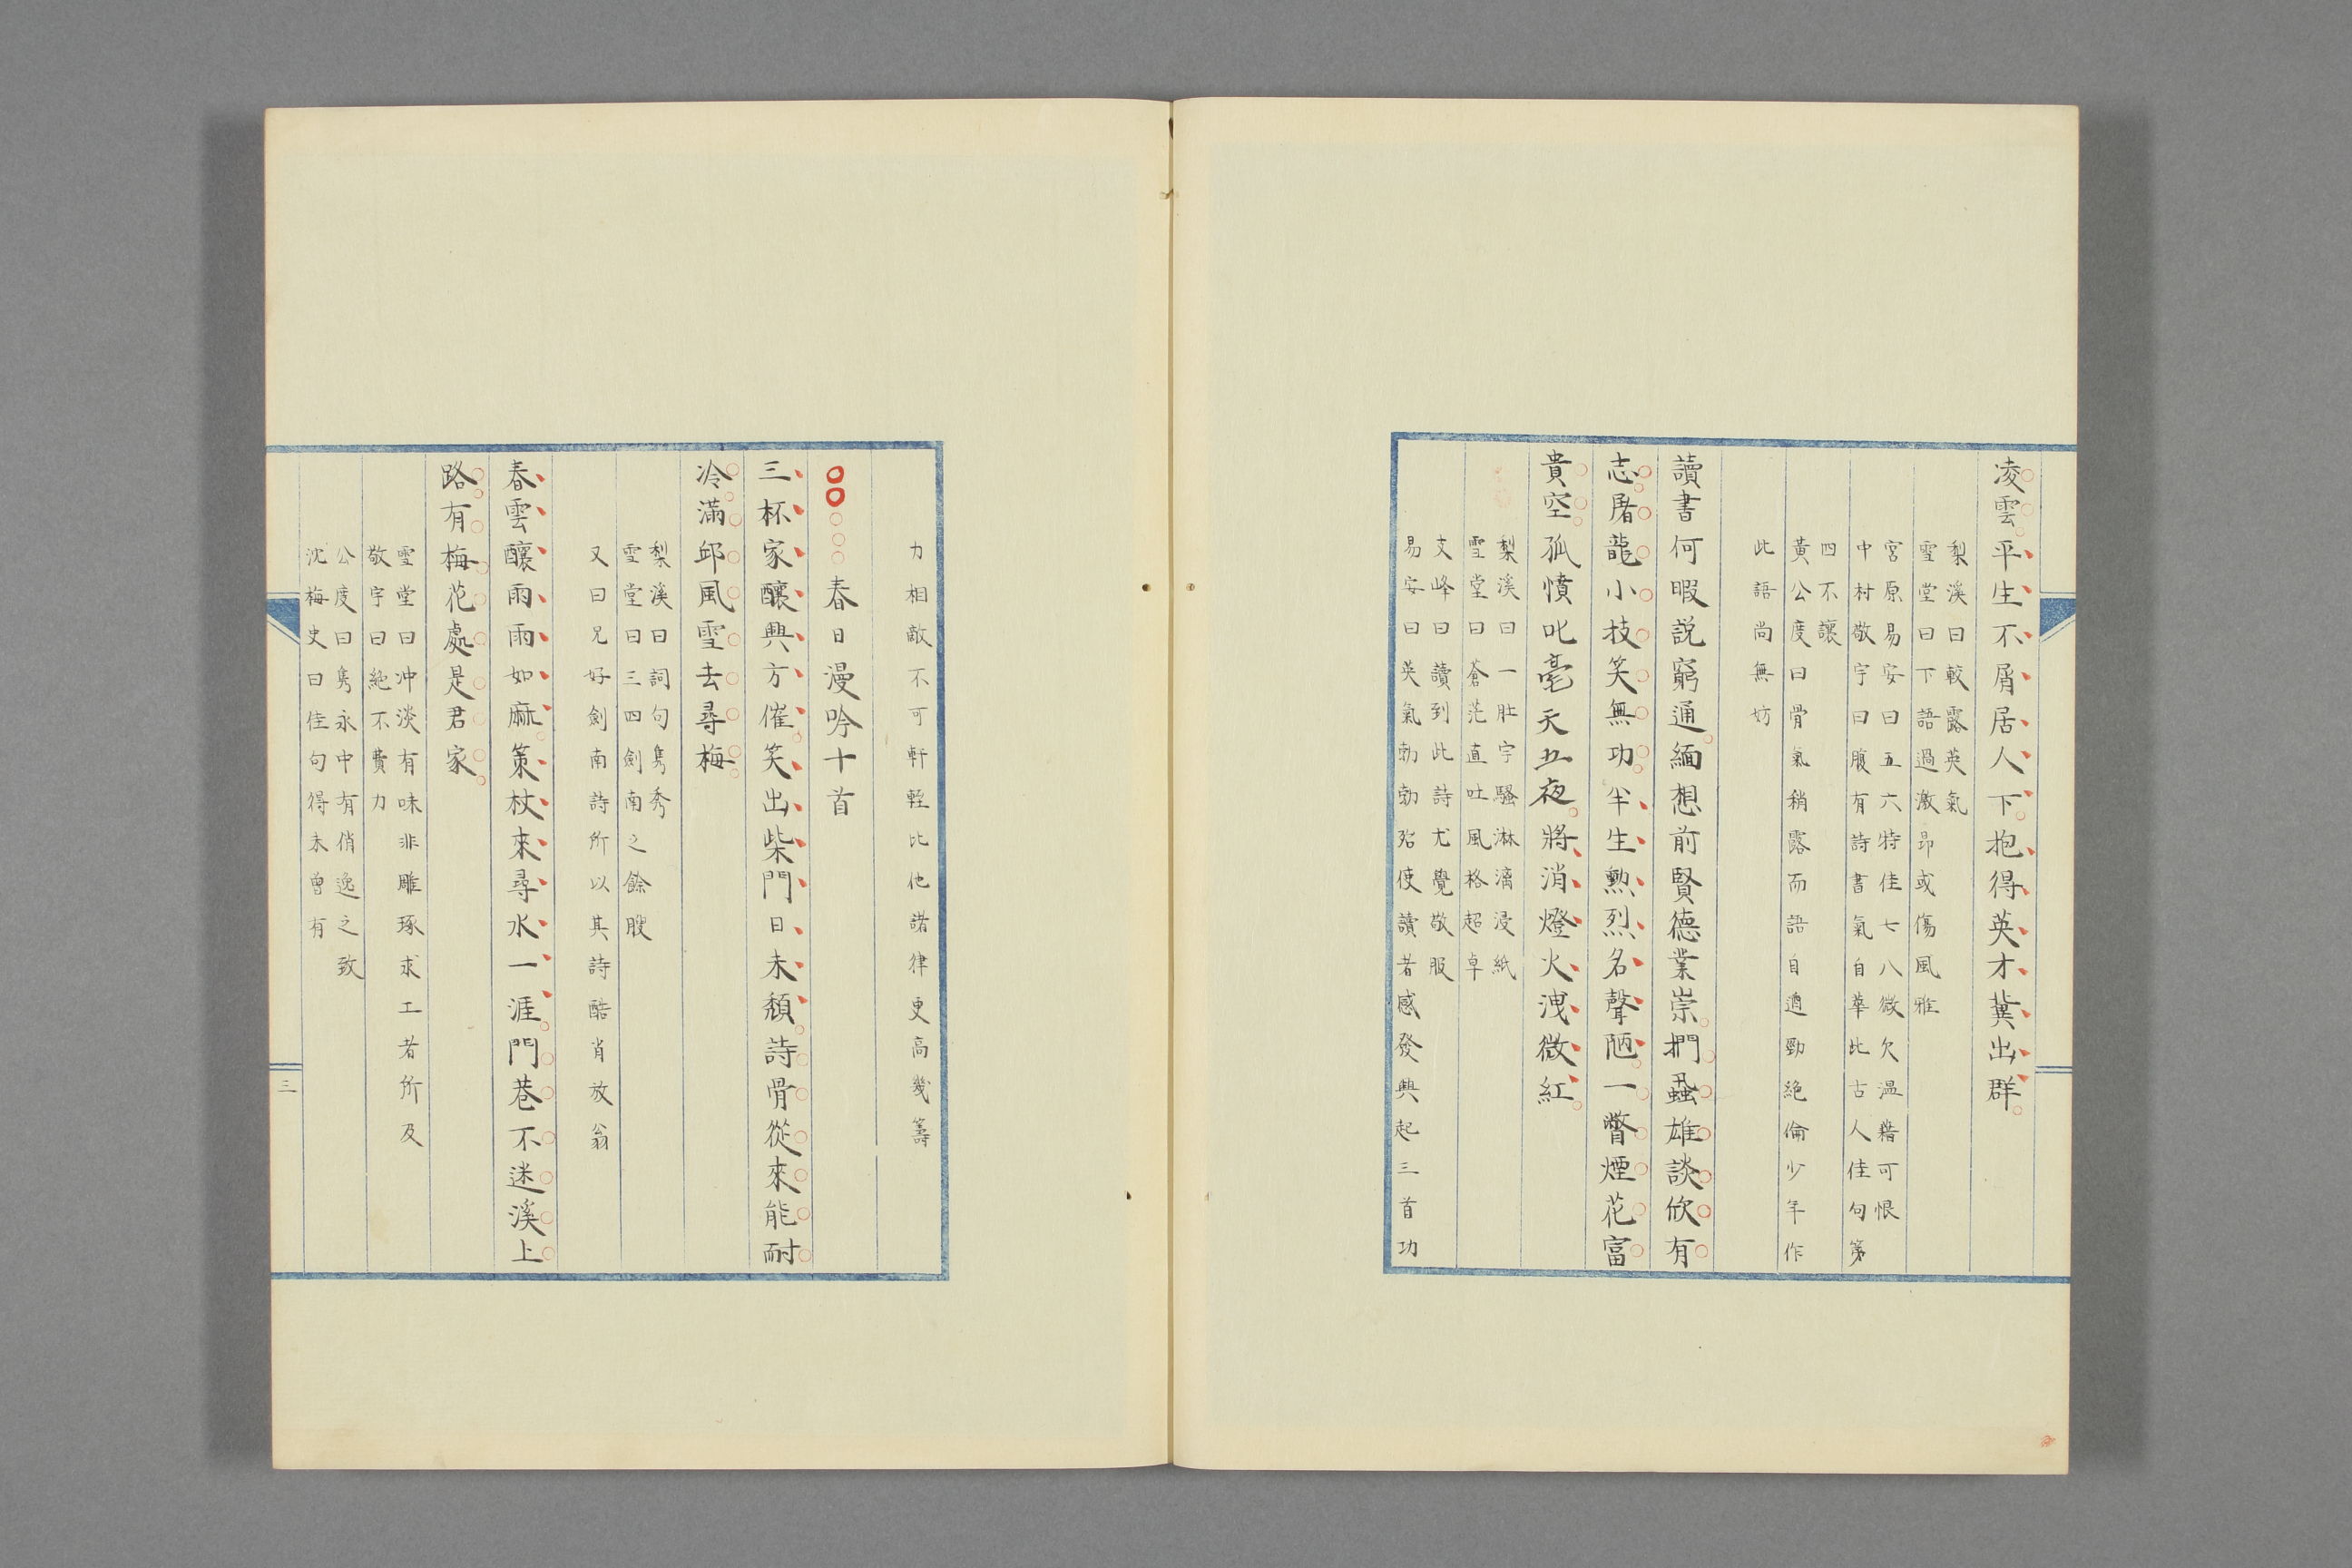 凌雲平生不屑居人下抱得英才冀出群
梨溪曰較露英氣
雪堂曰下語過激昂或傷風雅
宮原易安曰五六特佳七八微欠温藉可恨
中村敬宇曰腹有詩書氣自華此古人佳句第
四不讓
黃公度曰骨氣稍露而語自遒勁絶倫少年作
此語尚無妨
讀書何暇説窮通緬想前賢德業崇捫蝨雄談欣有
志屠龍小技笑無功半生勲烈名聲陋一瞥煙花富
貴空孤憤叱毫天五夜將消燈火洩微紅
梨溪曰一肚宇騷淋漓浸紙
雪堂曰蒼茫直吐風格超卓
支峰曰讀到此詩尤覺敬服
易安曰英氣勃勃殆使讀者感發興起三首功
力相敵不可軒輊比他諸律更高幾籌
春日漫吟十首
三杯家釀興方催笑出柴門日未頽詩骨從來能耐
冷滿邱風雪去尋梅
梨溪曰詞句雋秀
雪堂曰三四劍南之餘馥
又曰兄好劍南詩所以其詩酷肖放翁
春雲釀雨雨如麻策杖來尋水一涯門巷不迷溪上
路有梅花處是君家
雪堂曰冲淡有味非雕琢求工者所及
敬宇曰絶不費力
公度曰雋永中有俏逸之致
沈梅史曰佳句得未曾有
三